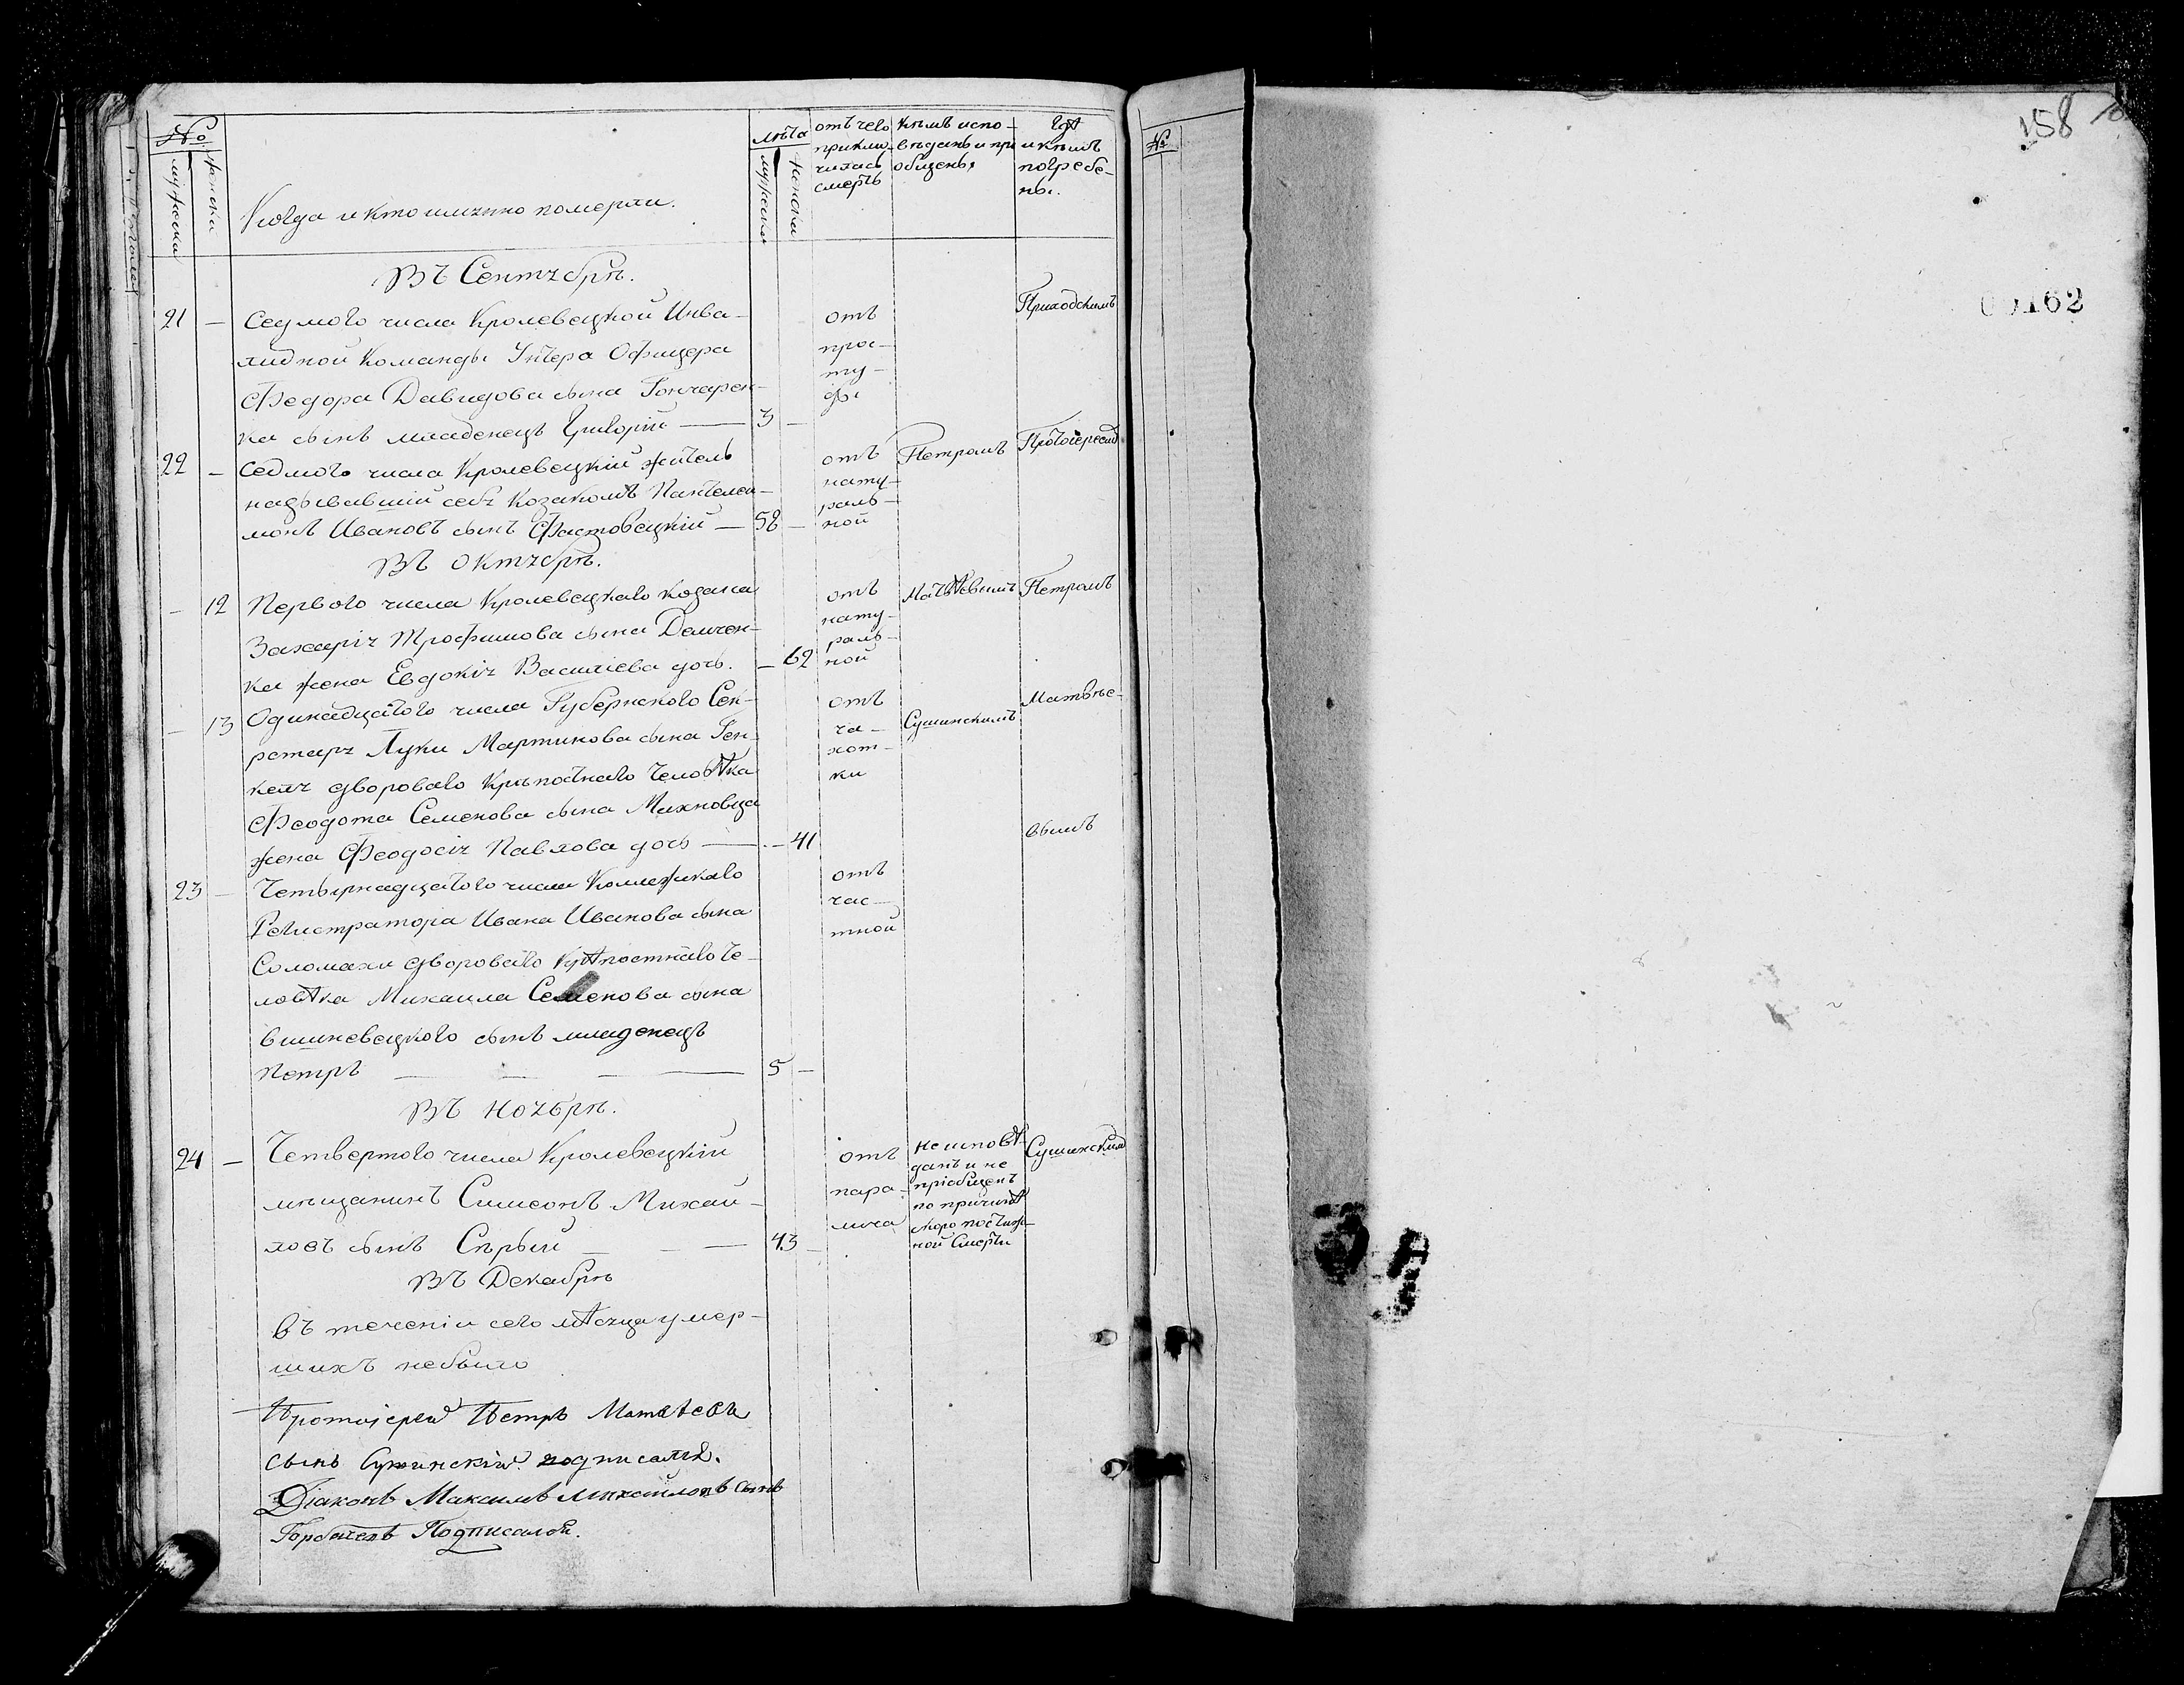 №
мужеска
женска
Когда и кто именно померли.
Лѣта
мужеска
женска
отъ чего
приклю-
чилась
смерть
кѣмъ испо-
вѣданы и прі
общены
Гдѣ
и кѣмъ
погребе-
ны.
№
158
162
Въ Сентябрѣ.
21 — Седмого числа Кролевецкой Инва-
лидной Команды Унтера Офицера
Федора Давидова сына Гончарен-
ка сынъ младенецъ Григорій — 3 —
отъ
прос-
ту-
ды
Приходскимъ
22 — Седмого числа Кролевецкій житель
надзывавшій себя Козакомъ Пантелеи-
монъ Ивановъ сынъ Фастовецкій — 58 —
отъ
нату-
раль-
ной
Петромъ
Протоіереемъ
Въ Октябрѣ.
— 12 Первого числа Кролевецкаго козака
Захарія Трофимова сына Демчен-
ка жена Евдокія Василіева дочь. — 62
отъ
нату-
раль-
ной
Матѣевымъ
Петромъ
— 13 Одинадцатого числа Губернского Сек-
ретаря Луки Мартинова сына Ген-
келя дворового Крѣпостнаго человѣка
Феодота Семенова сына Махновца
жена Феодосія Павлова дочь — — 41
отъ
ча-
хот-
ки
Сушинскимъ
Матѣѣе-
вымъ
23 — Четырнадцатого числа Коллежскаго
Регистратора Ивана Иванова сына
Соломахи дворового Крѣпостнаго Че-
ловѣка Михаила Семенова сына
вишневецкого сынъ младенецъ
Петръ — — — — 5 —
отъ
час-
тной
Въ Ноябрѣ.
24 — Четвертого числа Кролевецкій
мѣщанинъ Симеонъ Михаи-
ловъ сынъ Сѣрый — — — 43 —
отъ
пара-
лича
не исповѣ-
данъ и не
пріобщенъ
по причинѣ
скоро постиж-
ной Смерти
Сушинскимъ
Въ Декабрѣ
въ теченіи сего мѣсяца умер-
шихъ небыло
Протоіерей Петръ Матвѣевъ
сынъ Сушинскій подписался.
Діаконъ Максимъ Михайловъ Сынъ
Горбачевъ Подписался.